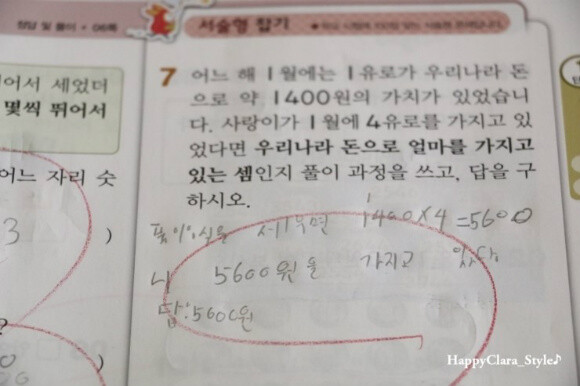 정답 및 풀이 • 06쪽
서술형 잡기
7 어느 해 1월에는 1유로가 우리나라 돈
으로 약 1400원의 가치가 있었습니
다. 사랑이가 1월에 4유로를 가지고 있
었다면 우리나라 돈으로 얼마를 가지고
있는 셈인지 풀이 과정을 쓰고, 답을 구
하시오.
어서 세었더
몇씩 뛰어서
어느 자리 숫
3 )
)
?
풀이: 식을 세우면 1400×4=5600
5600원을 가지고 있다.
답:5600원
HappyClara_Style♪